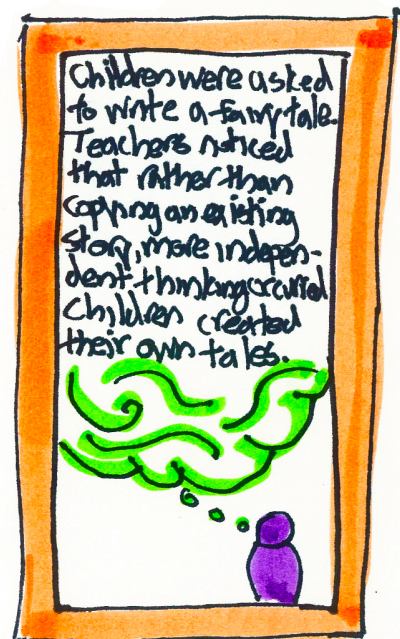 Children were asked
to write a fairytale.
Teachers noticed
that rather than
copying an existing
story, more indepen-
dent thinking occurred
Children created
their own tales.